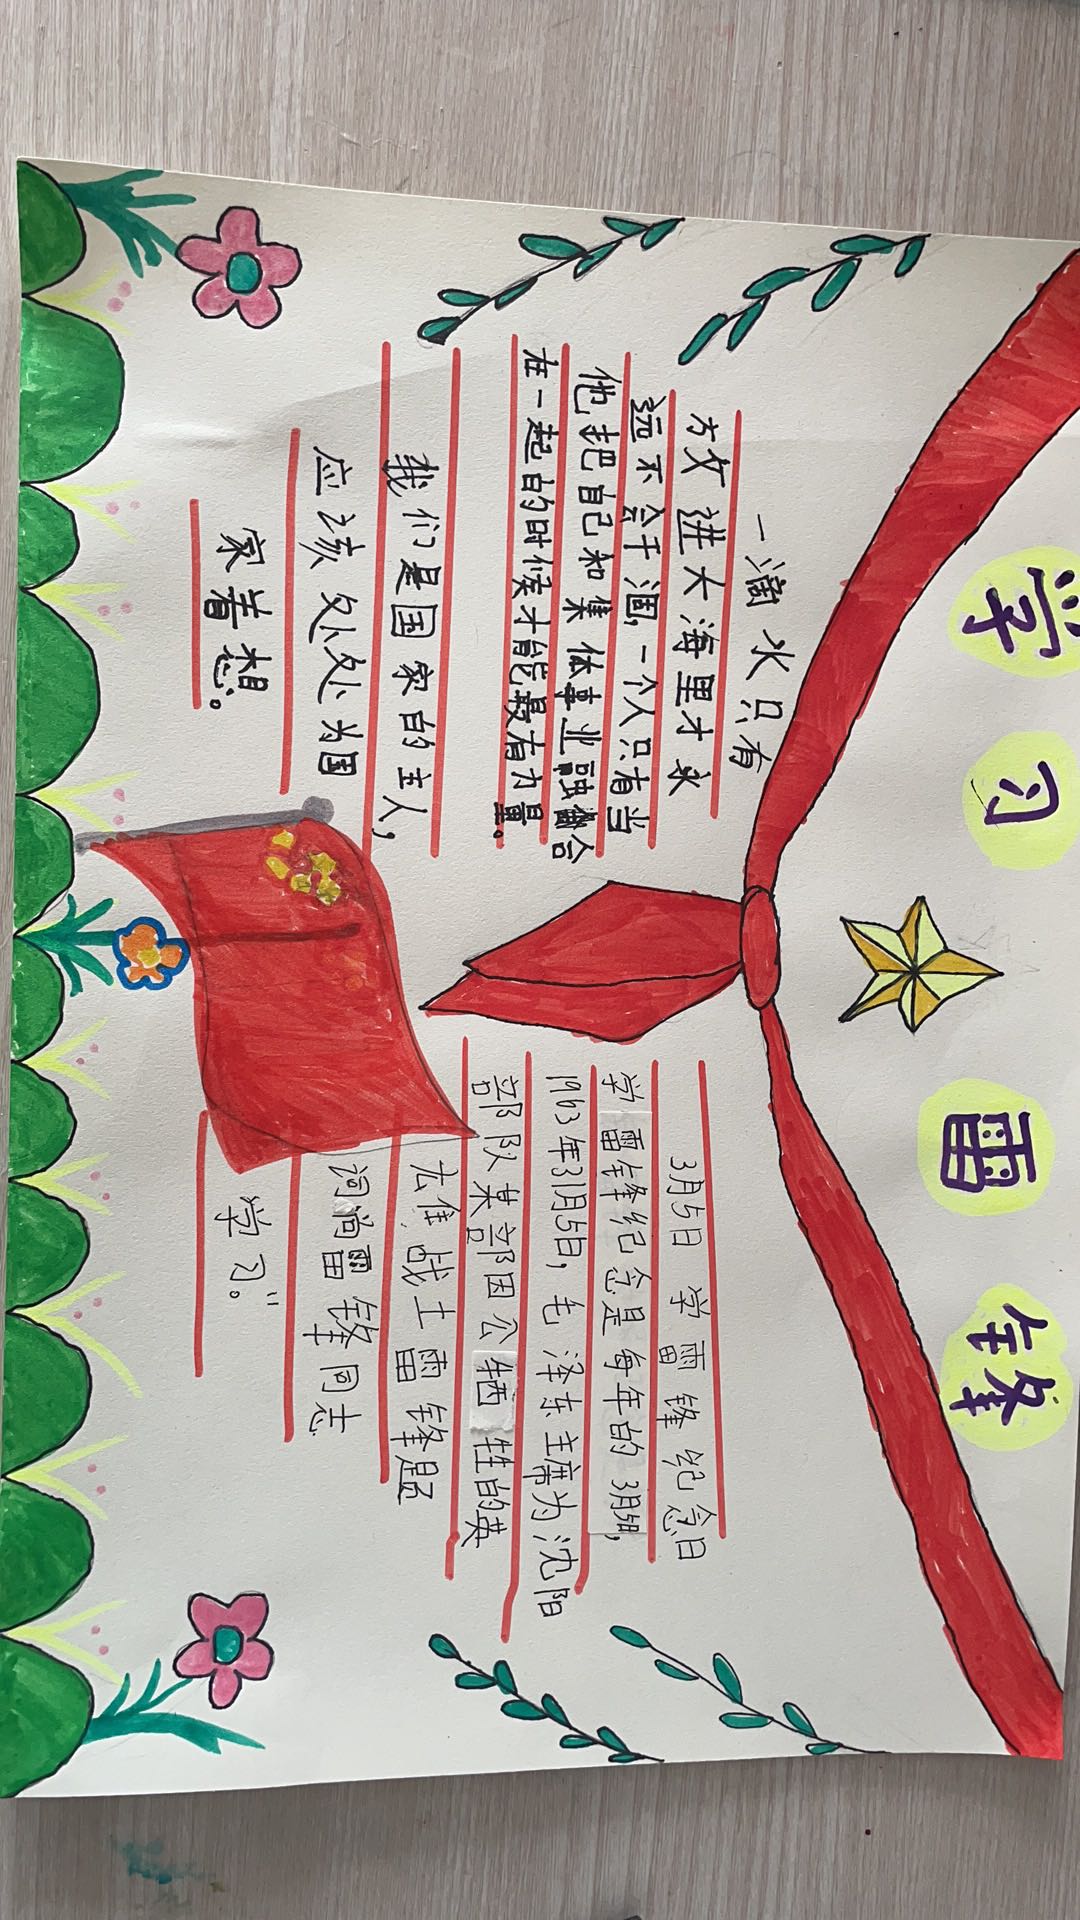 学习雷锋
一滴水只有
放进大海里才永
远不会干涸,一个人只有当
他把自己和集体事业融合
在一起的时候才能最有力量。
我们是国家的主人,
应该处处为国
家着想。
3月5日 学雷锋纪念日
学雷锋纪念是每年的3月5日,
1963年31月5日,毛泽东主席为沈阳
部队某部因公牺牲的英
去隹战士雷锋题
词尚雷锋同志
学习。"